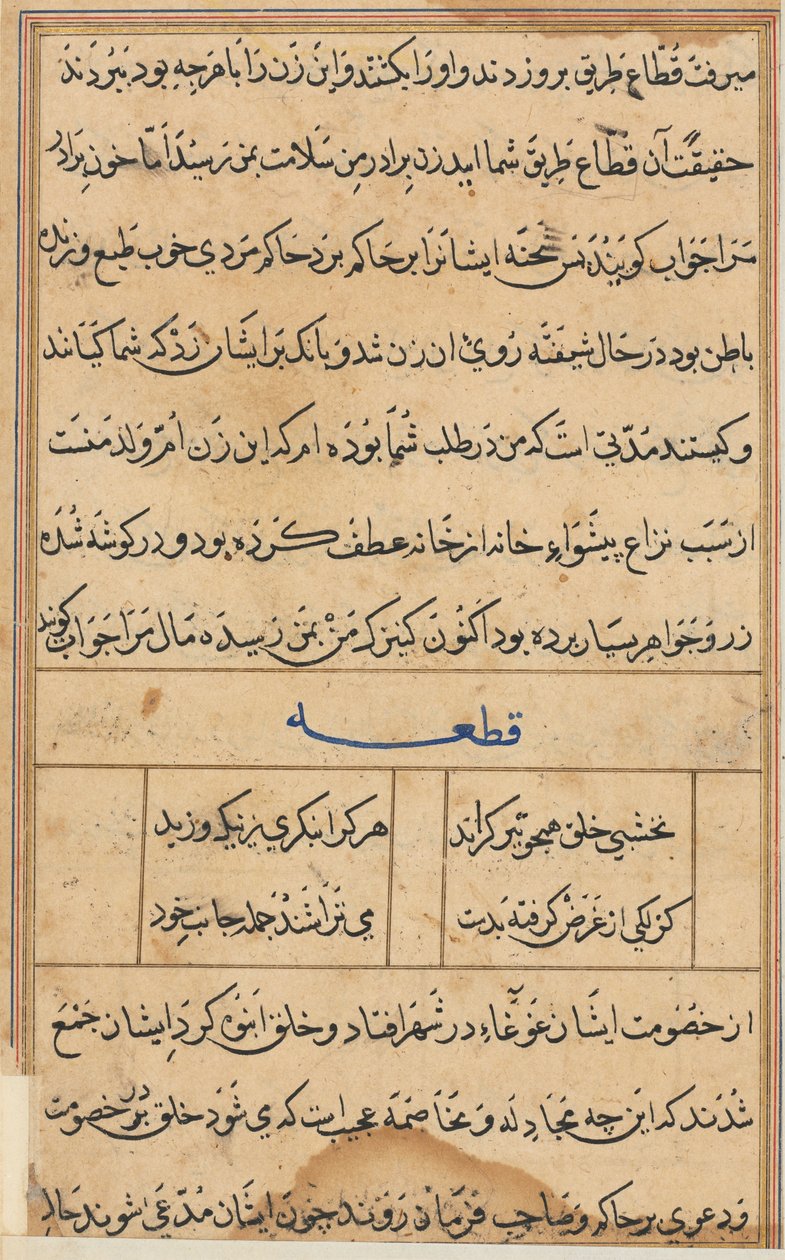 میرفت قُطّاع طریق برو زدند و اورا بکشتند و این زن را با هرچه بود ببردند
حقیقت آن قطّاع طریق شما ایید زن برادر من سلامت بمن رسید اما خون برادر
مرا جواب کویید پس شحنه ایشانرا بر حاکم برد حاکم مردی خوب طبع و زنده
باطن بود در حال شیفته روی ان زن شد و بانک برایشان زد که شما کیانند
و کیستند مدّتی است که من در طلب شما بوده ام که این زن اُمّ ولد منست
از سبب نزاع پیشواء خانه از خانه عطف کرده بود و در کوشه شده
زر و جواهر بسیار برده بود اکنون کنیزک من بمن رسیده مال مرا جواب کویند
قطعه
نخشبی خلق همچو تیر کراند هرکرا بنکری ز نیک و ز بد
کزلکی از غرض کرفته بدست می تراشند جمله جانب خود
از خصومت ایشان غوغاء در شهر افتاد و خلق انبوه کرد ایشان جمع
شدند که این چه مجادله و مخاصمه عجیب است که می شود خلق بر در خصومت
و دعوی بر حاکم و صاحب فرمان روند چون ایشان مدّعی شوند حال